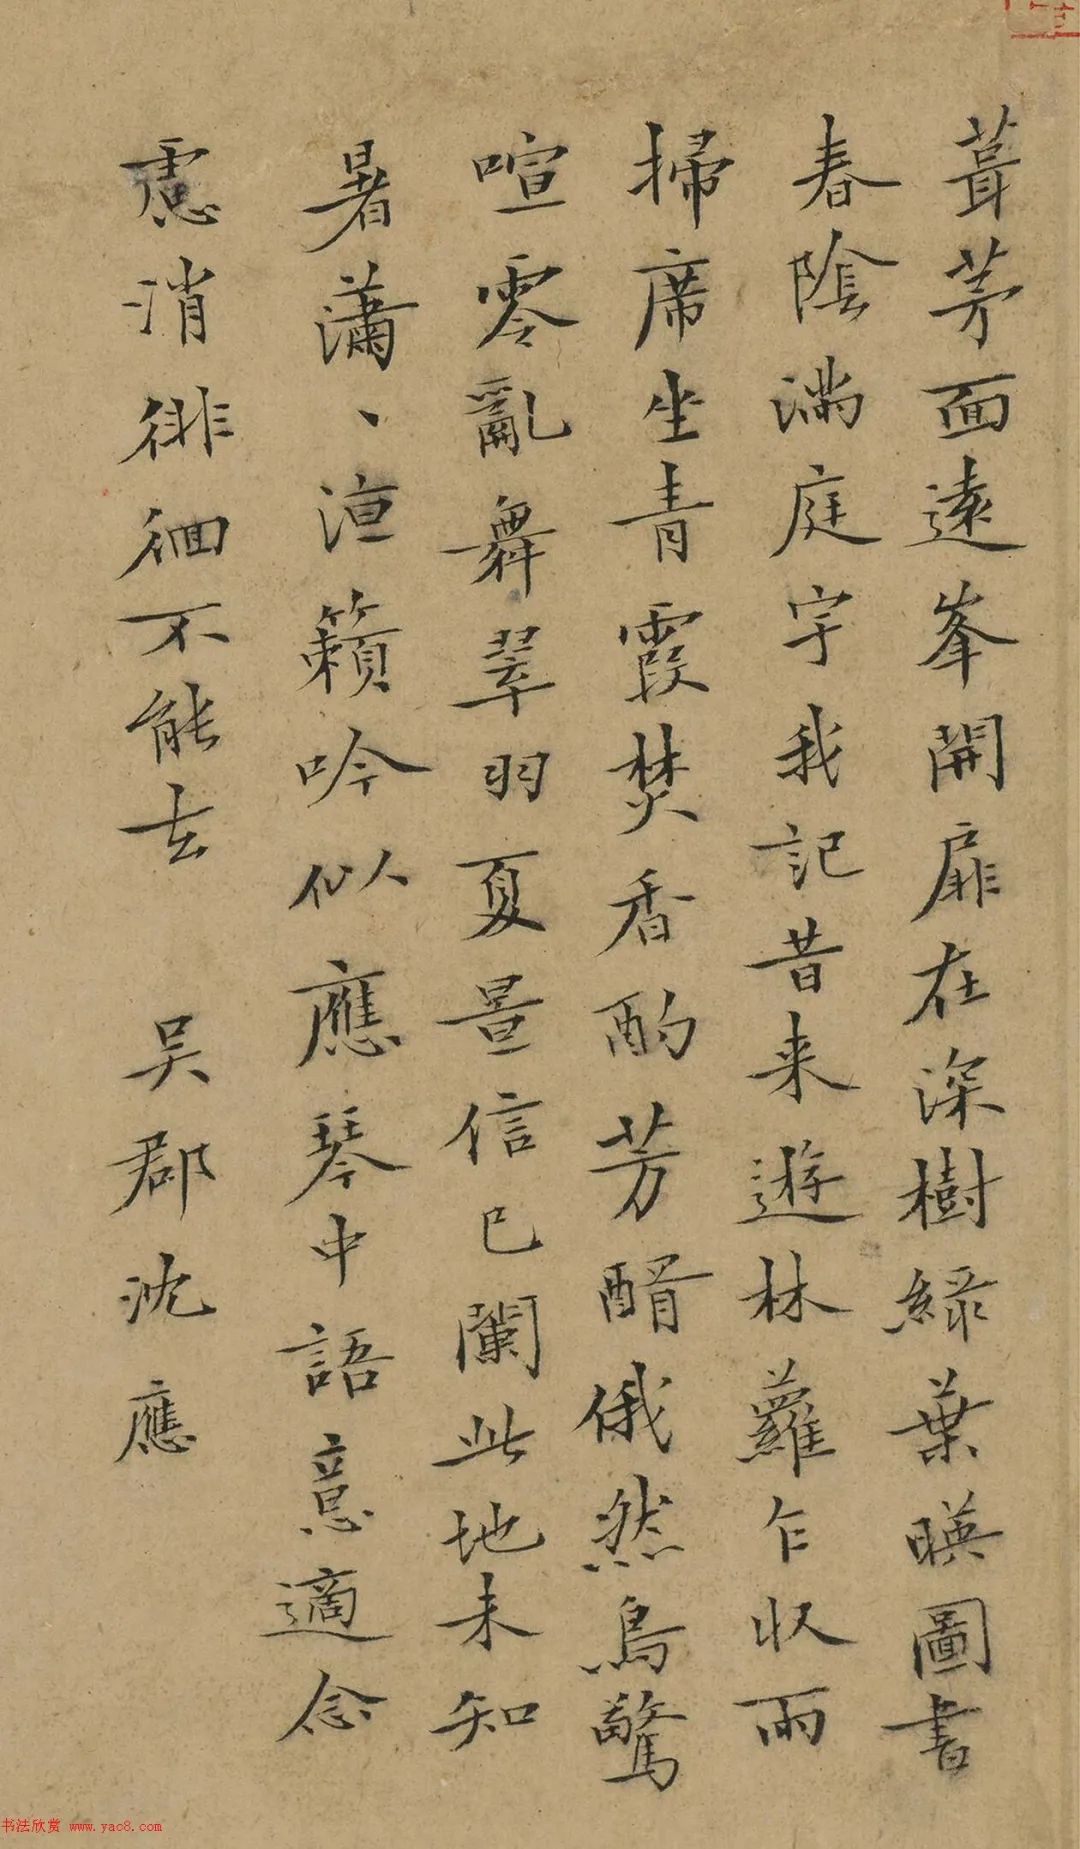 葺茅面遠峯開扉在深樹綠葉暎圖書
春陰滿庭宇我記昔来遊林蘿乍收雨
掃席坐青霞焚香酌芳醑俄然鳥驚
喧零亂舞翠羽夏景信已闌此地未知
暑瀟丶洹籟吟似應琴中語意適念
慮消徘徊不能去 吴郡沈應
书法欣赏 www.yac8.com